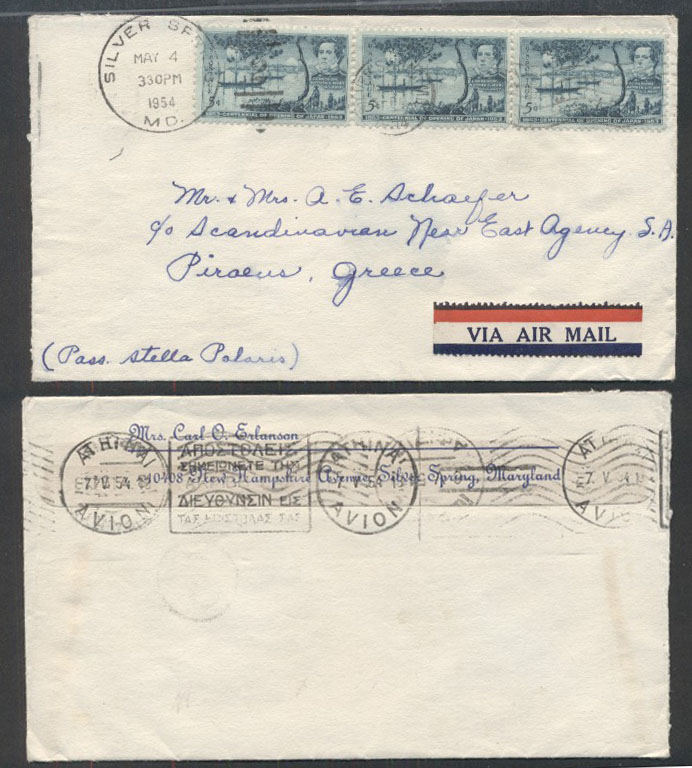 SILVER SP
MAY 4
330PM
1954
MD.
5¢ 5¢ 5¢
CENTENNIAL OF OPENING OF JAPAN CENTENNIAL OF OPENING OF JAPAN CENTENNIAL OF OPENING OF JAPAN
Mr. & Mrs. A. E. Schaefer
c/o Scandinavian Near East Agency S.A.
Piraeus, Greece
VIA AIR MAIL
(Pass. Stella Polaris)
Mrs. Carl O. Erlanson
10408 New Hampshire Avenue, Silver Spring, Maryland
ATHINAI
7. V 54
AVION
ΑΠΟΣΤΟΛΕΙΣ
ΣΗΜΕΙΩΝΕΤΕ ΤΗΝ
ΔΙΕΥΘΥΝΣΙΝ ΕΙΣ
ΤΑΣ ΕΠΙΣΤΟΛΑΣ ΣΑΣ
ATHINAI
AVION
AT
7. V
AVIO